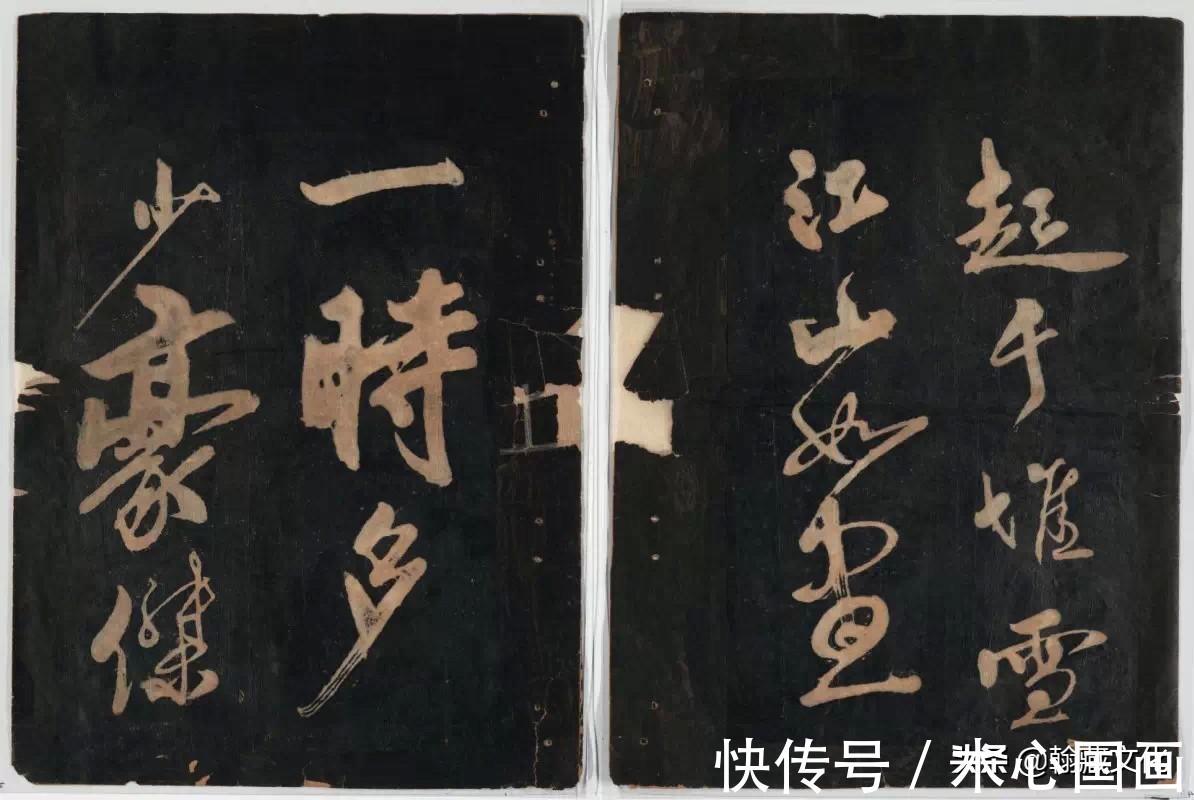 起千堆雪
江山如畫
一時多
少豪傑
快传号 / 米心国画
@翰藏文化